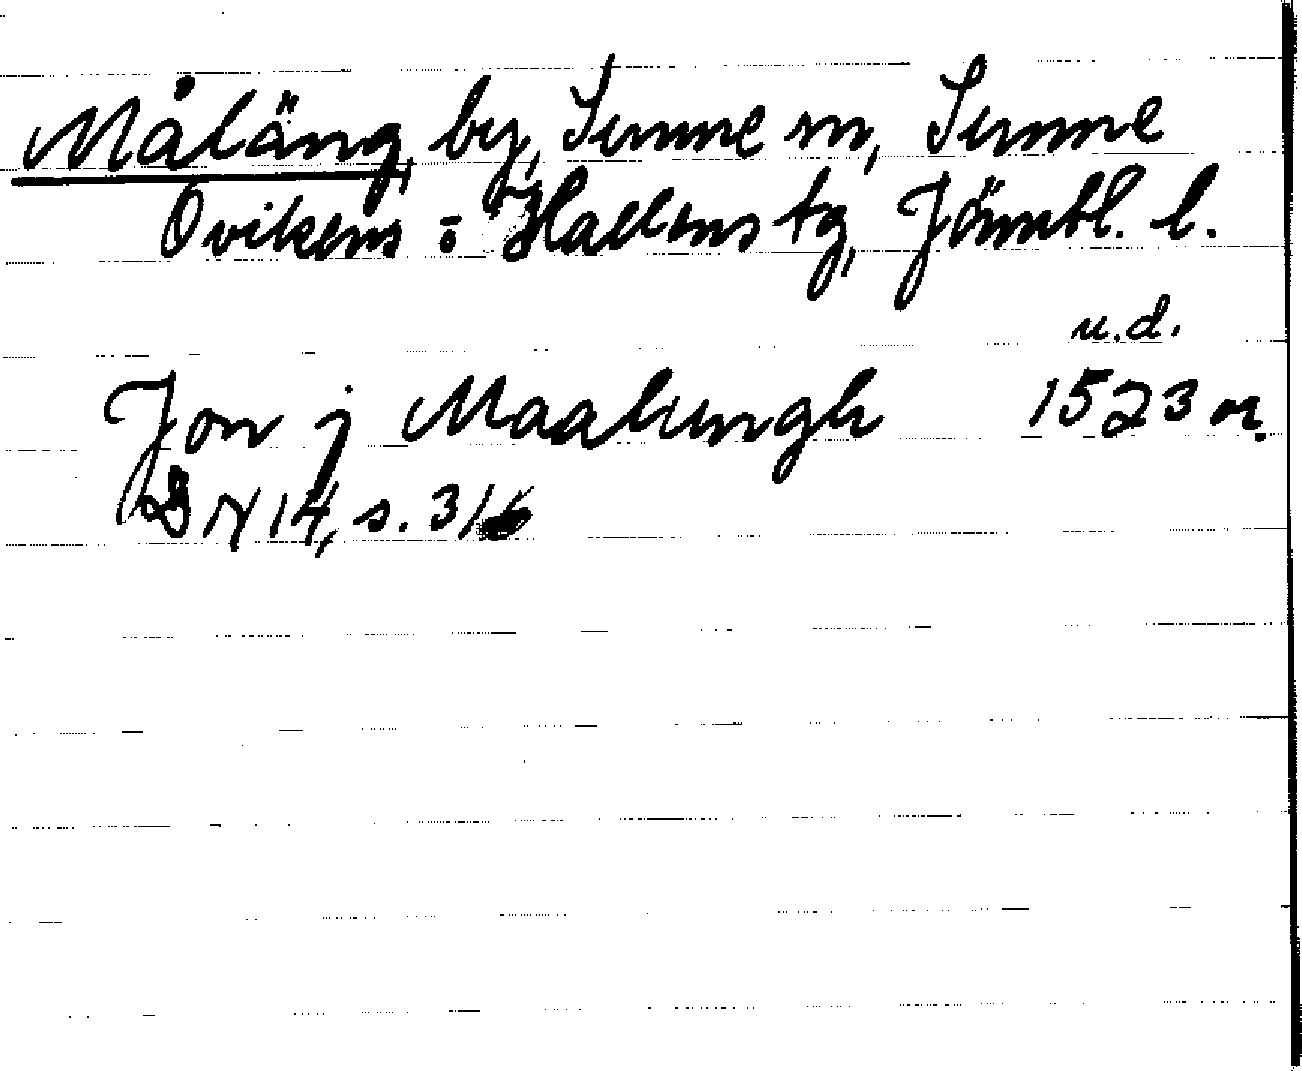 Måläng, by, Sunne sn, Sunne
Ovikens o Hallens tg, Jämtl. l.
u.d.
Jon j Maalungh 1523 or.
DN 14, s. 316